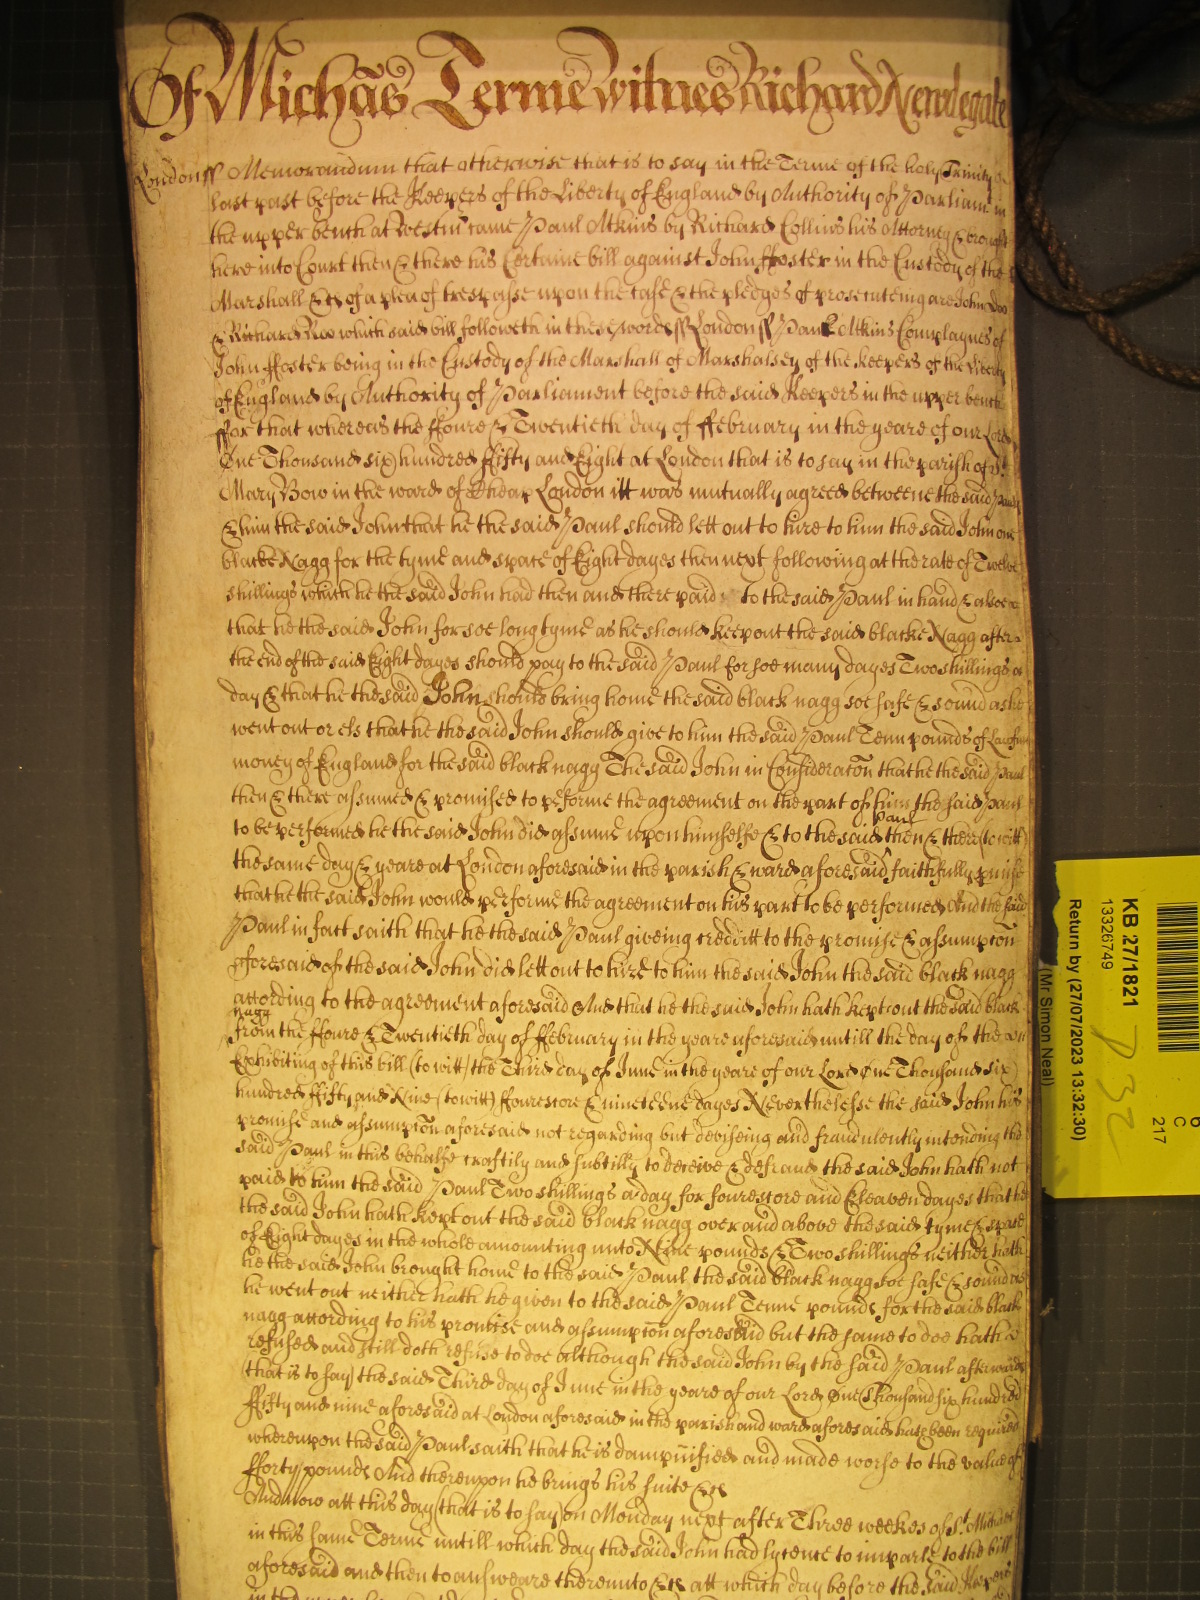 Of Michas Terme witnes Richard Newdegate
London ss Memorandum that otherwise that is to say in the Terme of the holy Trinity
last past before the Keepers of the Liberty of England by Authority of Parliamt in
the upper bench at Westm came Paul Atkins by Richard Collins his Attorney & brought
here into Court then & there his Certaine bill against John ffoster in the Custody of the
Marshall &c of a plea of trespasse upon the case & the pledges of prosecuteing are John Doo
& Richard Roo which said bill followeth in these words ss London ss Paul Atkins Complaynes of
John ffoster being in the Custody of the Marshall of Marshalsey of the Keepers of the Liberty
of England by Authority of Parliament before the said Keepers in the upper bench
ffor that whereas the ffoure & Twentieth day of ffebruary in the yeare of our Lord
One Thousand six hundred ffifty and Eight at London that is to say in the parish of St
Mary Bow in the ward of Cheap London itt was mutually agreed betweene the said Paul
& him the said John that he the said Paul should lett out to hire to him the said John one
blacke Nagg for the tyme and space of Eight dayes then next following at the rate of Twelve
shillings which he the said John had then and there paid to the said Paul in hand & alsoe
that he the said John for soe long tyme as he should keep out the said blacke Nagg after
the end of the said Eight dayes should pay to the said Paul for soe many dayes Two shillings a
day & that he the said John should bring home the said black nagg soe safe & sound as he
went out or els that he the said John should give to him the said Paul Tenn pounds of Lawfull
money of England for the said black nagg The said John in Consideraton that he the said Paul
then & there assumed & promised to pforme the agreement on the part of him the said Paul
to be performed he the said John did assume upon himselfe & to the said Paul then & there (to witt)
the same day & yeare at London aforesaid in the parish & ward aforesaid faithfully pmise
that he the said John would pforme the agreement on his part to be performed And the said
Paul in fact saith that he the said Paul giveing creditt to the promise & assumpton
aforesaid of the said John did lett out to hire to him the said John the said black nagg
according to the agreement aforesaid And that he the said John hath kept out the said black
nagg
from the ffoure & Twentieth day of ffebruary in the yeare aforesaid untill the day of the
Exhibiting of this bill (to witt) the Third day of June in the yeare of our Lord One Thousand six
hundred ffifty and Nine (to witt) ffourescore & nineteene dayes Neverthelesse the said John his
promise and assumpton aforesaid not regarding but deviseing and fraudulently intending the
said Paul in this behalfe craftily and subtilly to deceive & defraud the said John hath not
paid to him the said Paul Two shillings a day for fourescore and Eleaven dayes that he
the said John hath kept out the said black nagg over and above the said tyme & space
of Eight dayes in the whole amounting unto Nine pounds & Two shillings neither hath
he the said John brought home to the said Paul the said black nagg soe safe & sound as
he went out neither hath he given to the said Paul Tenne pounds for the said black
nagg according to his promise and assumpton aforesaid but the same to doe hath
refused and still doth refuse to doe although the said John by the said Paul afterwards
(that is to say) the said Third day of June in the yeare of our Lord One Thousand six hundred
ffifty and nine aforesaid at London aforesaid in the parish and ward aforesaid hath been required
whereupon the said Paul saith that he is dampnified and made worse to the value of
fforty pounds And thereupon he brings his suite &c
And now att this day (that is to say) on Monday next after Three weekes of St Michael
in this same Terme untill which day the said John had lycence to imparle to the bill
aforesaid and then to answeare thereunto &c att which day before the said Keepers
KB 27/1821
13326749
Return by (27/07/2023 13:32:30)
(Mr Simon Neal)
C
217
732